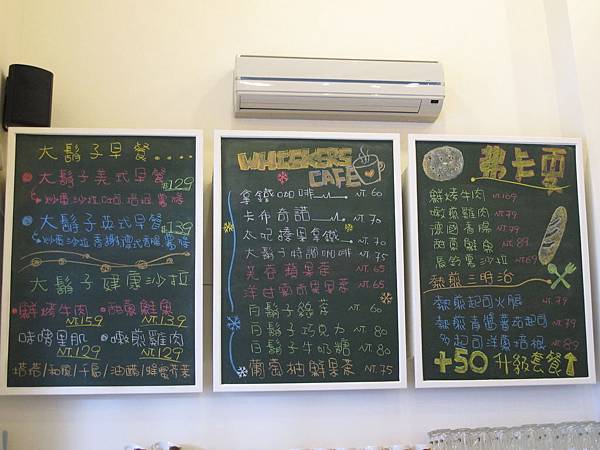 大鬍子早餐....
大鬍子美式早餐 $129
炒蛋 沙拉 培根 薯條
大鬍子英式早餐 $139
炒蛋 沙拉 德式香腸 薯條
大鬍子健康沙拉
鮮烤牛肉
NT.159
鮭魚
NT.139
里肌
NT.129
嫩煎雞肉
NT.129
/和風/千島/油醋/蜂蜜芥茉
WHISKERS
CAFE
拿鐵咖啡 NT.60
卡布奇諾 NT.70
太妃榛果拿鐵 NT.70
大鬍子特調咖啡 NT.75
芙蓉蘋果茶 NT.65
洋甘菊茶 NT.65
白鬍子綠茶 NT.60
白鬍子巧克力 NT.80
白鬍子牛奶糖 NT.80
葡萄柚鮮果茶 NT.75
弗卡夏
鮮烤牛肉 NT.169
嫩煎雞肉 NT.79
德國香腸 NT.79
鮭魚 NT.89
薯沙拉 NT.69
熱煎三明治
熱煎起司火腿 NT.79
熱煎青醬蕃茄起司 NT.79
多起司洋蔥培根 NT.89
+50升級套餐↑